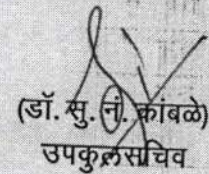 (डॉ. सु. नं. कांबळे)
उपकुलसचिव